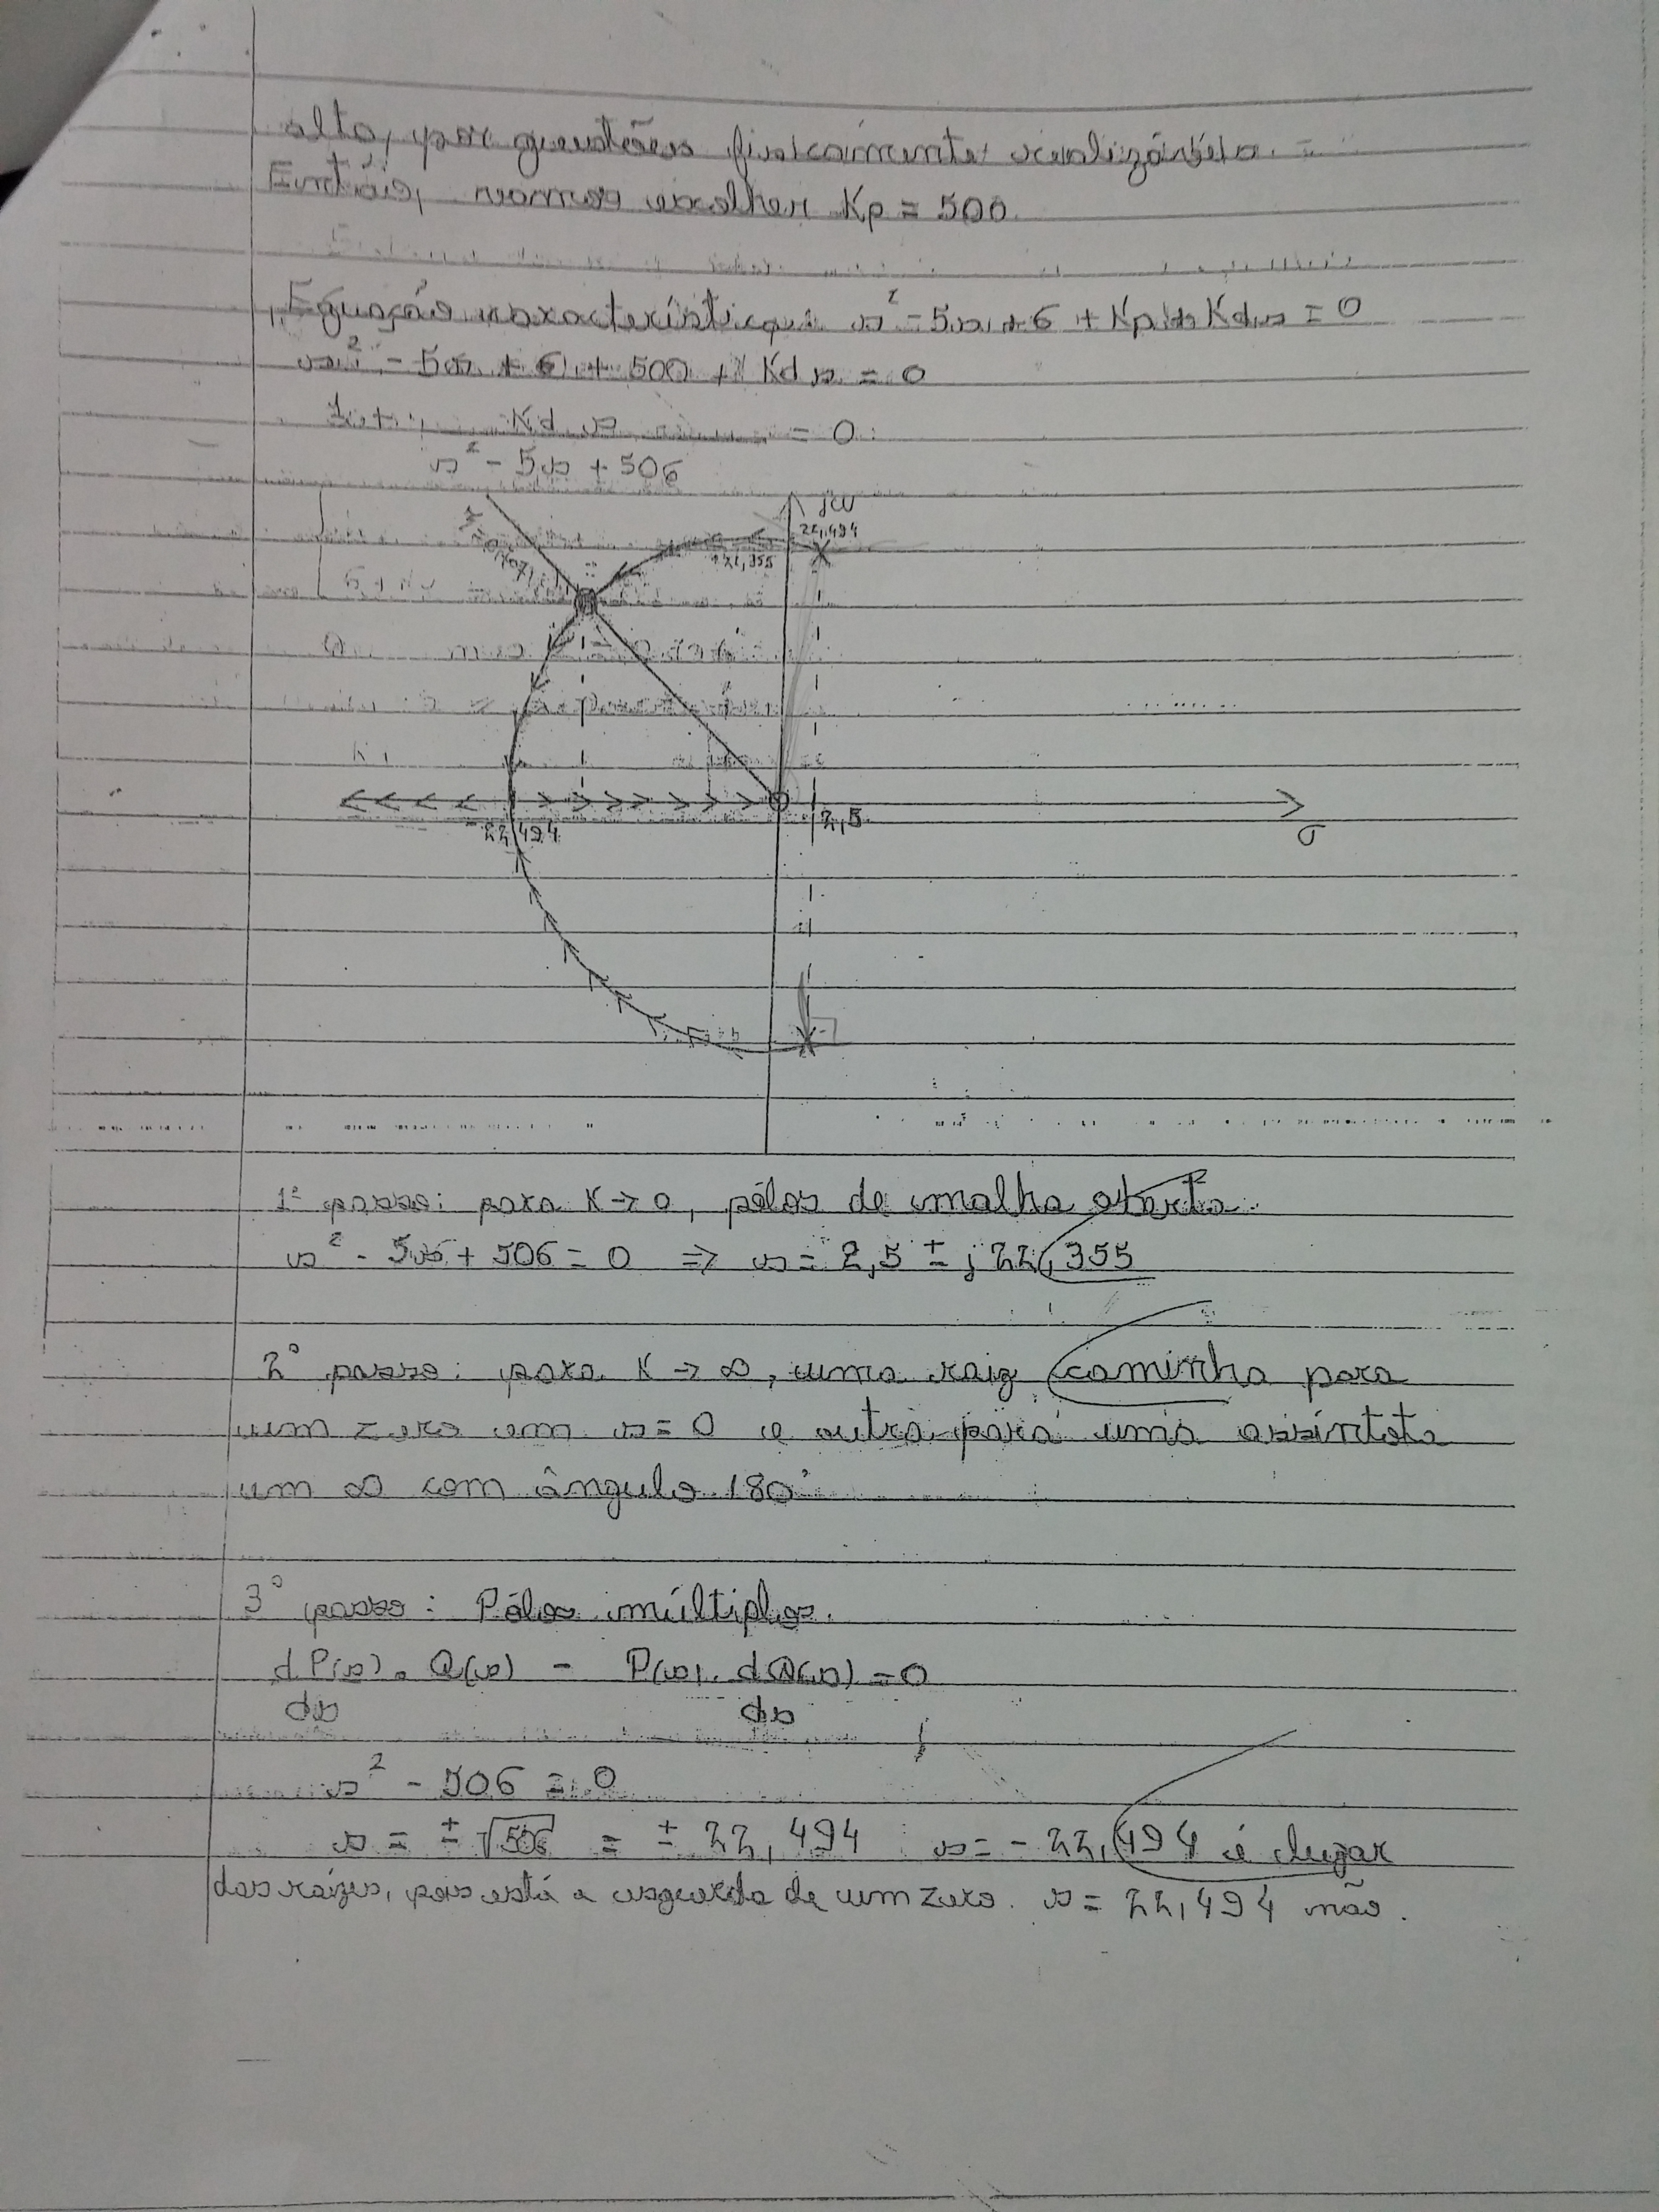 alto, por questões fisicamente realizáveis.
Então, vamos escolher Kp = 500.
Equação característica: s² - 5s + 6 + Kp + Kds = 0
s² - 5s + 6 + 500 + Kd s = 0
1 + Kd s = 0
s² - 5s + 506
jω
22,494
22,355
-22,494
2,5
σ
1º passo: para K → 0, pólos de malha aberta.
s² - 5s + 506 = 0 ⇒ s = 2,5 ± j 22,355
2º passo: para K → ∞, uma raiz caminha para
um zero em s = 0 e outra para uma assíntota
um ∞ com ângulo 180°
3º passo: Pólos múltiplos.
dP(s) . Q(s) - P(s) . dQ(s) = 0
ds ds
s² - 506 = 0
s = ± √506 = ± 22,494 s = - 22,494 é lugar
das raízes, pois está a esquerda de um zero. s = 22,494 não.